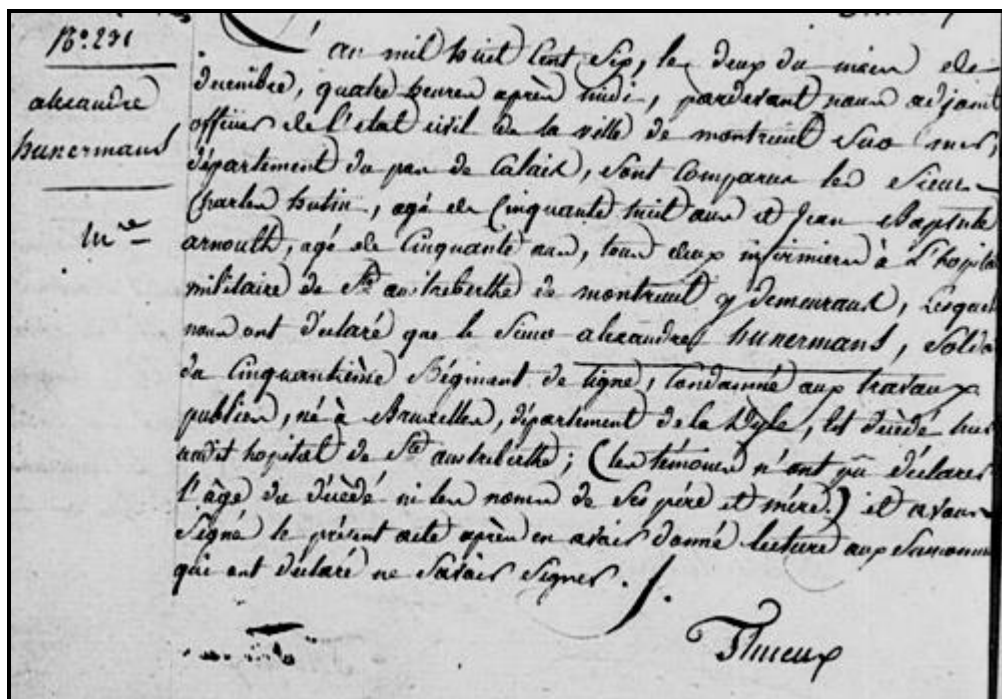 N.º 231
alexandre
hunermans
m.re
L'an mil huit Cent Six, le deux du mois de
decembre, quatre heures après midi, pardevant nous adjoint
officier de l'état civil de la ville de montreuil sur mer,
département du pas de Calais, sont Comparus les Sieurs
Charles hutin, agé de Cinquante huit ans et Jean Baptiste
arnoult, agé de Cinquante ans, tous deux infirmiers à L'hopital
militaire de Ste austreberthe de montreuil y demeurans, Lesquels
nous ont déclaré que le Sieur alexandre hunermans, Soldat
du Cinquantième Régiment de Ligne, Condamné aux travaux
publics, né à Bruxelles, département de la Dyle, Est décédé hier
audit hopital de Ste austreberthe; (les témoins n'ont pu déclarer
l'âge du décédé ni les noms de Ses père et mère.) et avons
Signé le présent acte après en avoir donné lecture aux
qui ont déclaré ne Savoir Signer.